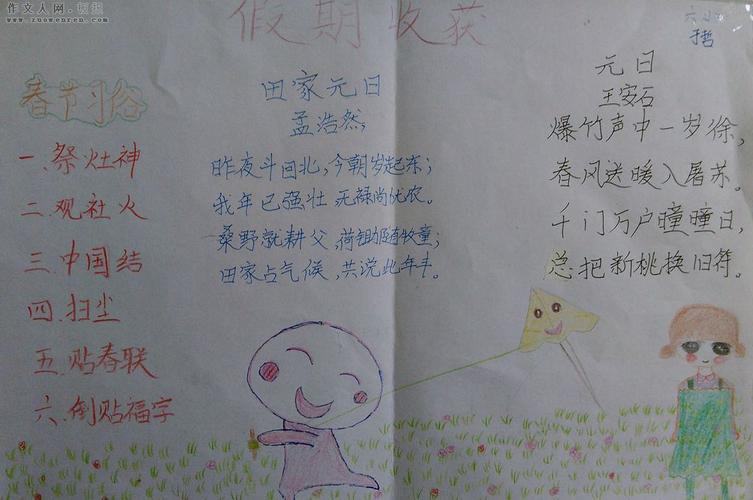 作文人网·知识
www.zuowenren.com
假期收获
六小
于哲
春节习俗
一.祭灶神
二.观社火
三.中国结
四.扫尘
五.贴春联
六.倒贴福字
田家元日
孟浩然
昨夜斗回北,今朝岁起东;
我年已强壮,无禄尚优农。
桑野就耕父,荷锄随牧童;
田家占气候,共说此年丰。
元日
王安石
爆竹声中一岁徐,
春风送暖入屠苏。
千门万户曈曈日,
总把新桃换旧符。